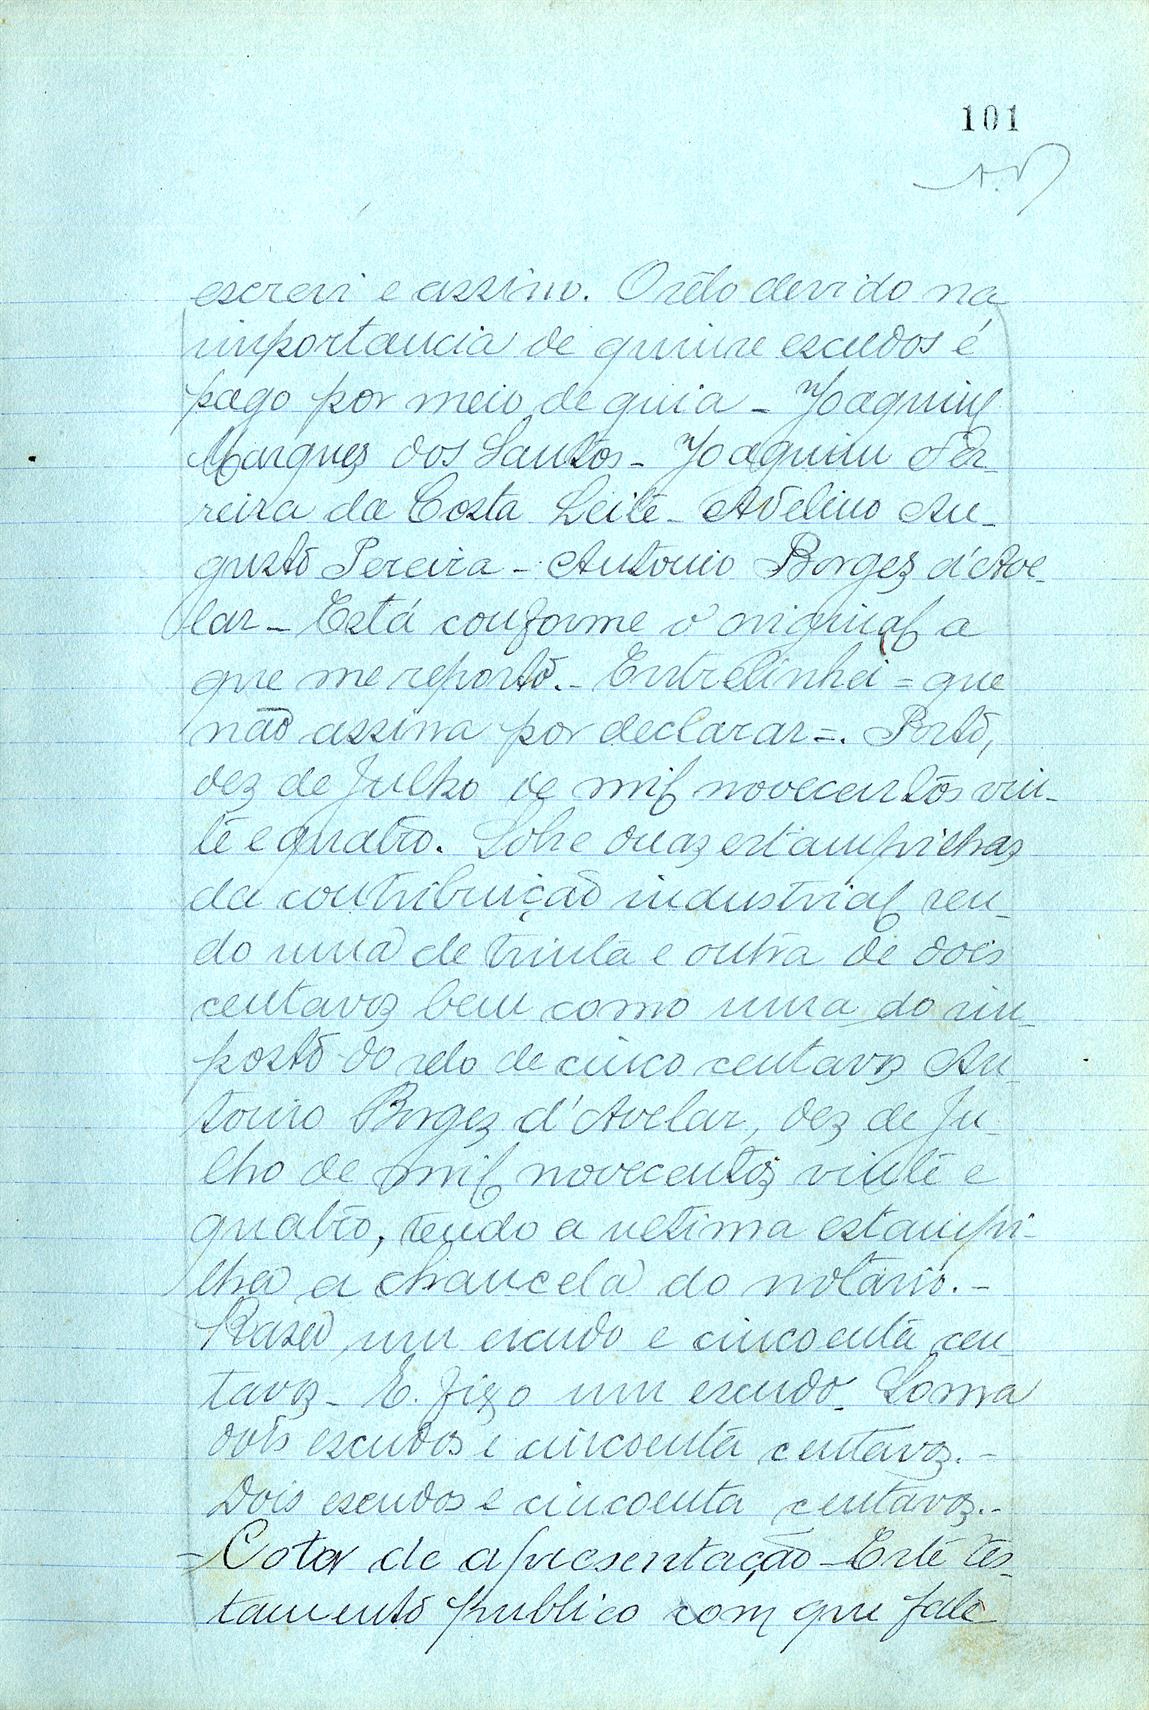 101
A.B
escrevi e assino. O sêlo devido na
importancia de quinze escudos é
pago por meio de guia - Joaquim
Marques dos Santos - Joaquim Fer-
reira da Costa Leite - Avelino Au-
gusto Pereira - Antonio Borges d'Ave-
lar - Está conforme o original a
que me reporto. - Entrelinhei = que
não assina por declarar =. Porto,
dez de Julho de mil novecentos vin-
te e quatro. Sobre duas estampilhas
da contribuição industrial sen-
do uma de trinta e outra de dois
centavos bem como uma do im-
posto do selo de cinco centavos An-
tonio Borges d'Avelar, dez de Ju-
lho de mil novecentos vinte e
quatro, tendo a ultima estampi-
lha a chancela do notario. -
Rasa um escudo e cincoenta cen-
tavos - E. fixo um escudo - Soma
dois escudos e cincoenta centavos. -
Dois escudos e cincoenta centavos. -
= Cota de apresentação - Este tes-
tamento publico com que fale